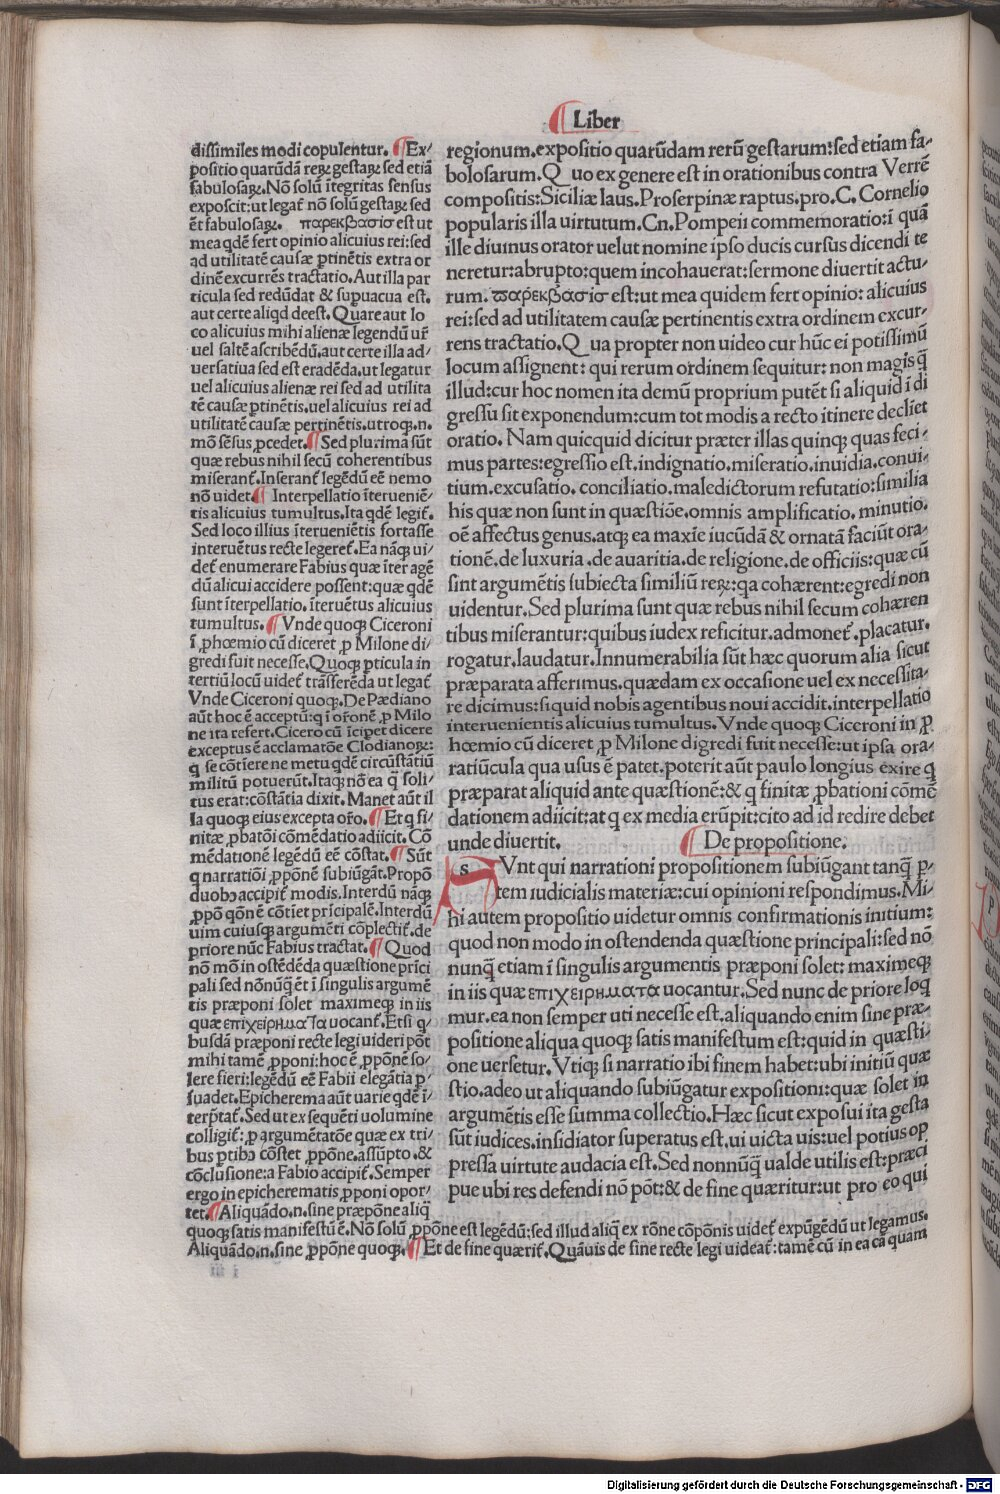 Liber
dissimiles modi copulentur. Ex/
positio quarũdã reꝝ gestaꝝ sed etiã
fabulosaꝝ. Nõ solũ ĩtegritas sensus
exposcit: ut legat̃ nõ solũ gestaꝝ sed
ẽt fabulosaꝝ. παρεκβασισ est ut
mea qdẽ fert opinio alicuius rei: sed
ad utilitatẽ causæ ꝑtinẽtis extra or
dinẽ excurrẽs tractatio. Aut illa par
ticula sed redũdat & supuacua est.
aut certe aliqd deest. Quare aut lo
co alicuius mihi alienæ legendũ ur̃
uel saltẽ ascribẽdũ. aut certe illa ad/
uersatiua sed est eradẽda. ut legatur
uel alicuius alienæ rei sed ad utilita
tẽ causæ ꝑtinẽtis. uel alicuius rei ad
utilitatẽ causæ pertinẽtis. utroqꝫ .n.
mõ sẽsus ꝓcedet. Sed plurima sũt
quæ rebus nihil secũ coherentibus
miserant̃. Inserant̃ legẽdũ eẽ nemo
nõ uidet. Interpellatio ĩterueniẽ/
tis alicuius tumultus. Ita qdẽ legit̃.
Sed loco illius ĩterueniẽtis fortasse
interuẽtus recte legeret̃. Ea nãqꝫ ui/
det̃ enumerare Fabius quæ ĩter agẽ
dũ alicui accidere possent: quæ qdẽ
sunt ĩterpellatio. ĩteruẽtus alicuius
tumultus. Vnde quoqꝫ Ciceroni
ĩ ꝓhœmio cũ diceret ꝓ Milone di/
gredi fuit necesse. Quoqꝫ ꝑticula in
tertiũ locũ uidet̃ trãsferẽda ut legat̃
Vnde Ciceroni quoqꝫ. De Pædiano
aũt hoc ẽ acceptũ: q ĩ oր̃onẽ ꝓ Milo
ne ita refert. Cicero cũ ĩcipet dicere
exceptus ẽ acclamatõe Clodianoꝝ:
q se cõtĩere ne metu qdẽ circũstãtiũ
militũ potuerũt. Itaqꝫ nõ ea q̃ soli/
tus erat: cõstãtia dixit. Manet aũt il
la quoqꝫ eius excepta or̃o. Et q fi/
nitæ ꝓbatõi cõmẽdatio adiicit. Cõ
mẽdationẽ legẽdũ eẽ cõstat. Sũt
q narratiõi ꝓpõnẽ subiũgãt. Propõ
duobꝫ accipit̃ modis. Interdũ nãqꝫ
ꝓpõ qõnẽ cõtiet prĩcipalẽ. Interdũ
uim cuiusqꝫ argumẽti cõplectit̃. de
priore nũc Fabius tractat. Quod
nõ mõ in ostẽdẽda quæstione prĩci
pali sed nõnũq̃ ẽt ĩ singulis argumẽ
tis præponi solet maximeqꝫ in iis
quæ επιχειρηματα uocant̃. Etsi q/
busdã præponi recte legi uideri põt
mihi tamẽ ꝓponi: hoc ẽ ꝓpõnẽ so/
lere fieri: legẽdũ eẽ Fabii elegãtia ꝑ/
suadet. Epicherema aũt uarie qdẽ ĩ/
terp̃tat̃. Sed ut ex sequẽti uolumine
colligit̃: ꝓ argumẽtatõe quæ ex tri/
bus ptibꝫ cõstet ꝓpõne. assũpto. &
cõclusione: a Fabio accipit̃. Semper
ergo in epicherematis ꝓponi opor/
tet. Aliquãdo .n. sine præpõne aliq̃
quoqꝫ satis manifestũ ẽ. Nõ solũ ꝓpõne est legẽdũ: sed illud aliq̃ ex rõne cõpõnis uidet̃ expũgẽdũ ut legamus.
Aliquãdo .n. sine ꝓpõne quoqꝫ. Et de fine quærit̃. Quãuis de fine recte legi uideat̃: tamẽ cũ in ea cã quam
regionum. expositio quarũdam rerũ gestarum: sed etiam fa/
bolosarum. Quo ex genere est in orationibus contra Verrẽ
compositis: Siciliæ laus. Proserpinæ raptus. pro. C. Cornelio
popularis illa uirtutum. Cn. Pompeii commemoratio: ĩ quã
ille diuinus orator uelut nomine ipso ducis cursus dicendi te
neretur: abrupto: quem incohauerat: sermone diuertit actu/
rum. παρεκβασισ est: ut mea quidem fert opinio: alicuius
rei: sed ad utilitatem causæ pertinentis extra ordinem excur/
rens tractatio. Qua propter non uideo cur hũc ei potissimũ
locum assignent: qui rerum ordinem sequitur: non magis q̃
illud: cur hoc nomen ita demũ proprium putẽt si aliquid ĩ di
gressũ sit exponendum: cum tot modis a recto itinere declĩet
oratio. Nam quicquid dicitur præter illas quinqꝫ quas feci/
mus partes: egressio est. indignatio. miseratio. inuidia. conui/
tium. excusatio. conciliatio. maledictorum refutatio: similia
his quæ non sunt in quæstiõe. omnis amplificatio. minutio.
oẽ affectus genus. atqꝫ ea maxĩe iucũdã & ornatã faciũt ora/
tionẽ. de luxuria. de auaritia. de religione. de officiis: quæ cũ
sint argumẽtis subiecta similiũ reꝝ: qa cohærent: egredi non
uidentur. Sed plurima sunt quæ rebus nihil secum cohæren
tibus miserantur: quibus iudex reficitur. admonet̃. placatur.
rogatur. laudatur. Innumerabilia sũt hæc quorum alia sicut
præparata afferimus. quædam ex occasione uel ex necessita/
re dicimus: si quid nobis agentibus noui accidit. interpellatio
interuenientis alicuius tumultus. Vnde quoqꝫ Ciceroni in ꝓ
hœmio cũ diceret ꝓ Milone digredi fuit necesse: ut ipsa ora/
ratiũcula qua usus ẽ patet. poterit aũt paulo longius exire q
præparat aliquid ante quæstionẽ: & q finitæ ꝓbationi cõmẽ
dationem adiicit: at q ex media erũpit: cito ad id redire debet
unde diuertit. De propositione.
SVnt qui narrationi propositionem subiũgant tanq̃ ꝑ/
tem iudicialis materiæ: cui opinioni respondimus. Mi/
hi autem propositio uidetur omnis confirmationis initium:
quod non modo in ostendenda quæstione principali: sed nõ
nunq̃ etiam ĩ singulis argumentis præponi solet: maximeqꝫ
in iis quæ επιχειρηματα uocantur. Sed nunc de priore loq̃
mur. ea non semper uti necesse est. aliquando enim sine præ/
positione aliqua quoqꝫ satis manifestum est: quid in quæsti/
one uersetur. Vtiqꝫ si narratio ibi finem habet: ubi initiũ quæ
stio. adeo ut aliquando subiũgatur expositioni: quæ solet in
argumẽtis esse summa collectio. Hæc sicut exposui ita gesta
sũt iudices. insidiator superatus est. ui uicta uis: uel potius op
pressa uirtute audacia est. Sed nonnũq̃ ualde utilis est: præci
pue ubi res defendi nõ põt: & de fine quæritur: ut pro eo qui
Digitalisierung gefördert durch die Deutsche Forschungsgemeinschaft - DFG